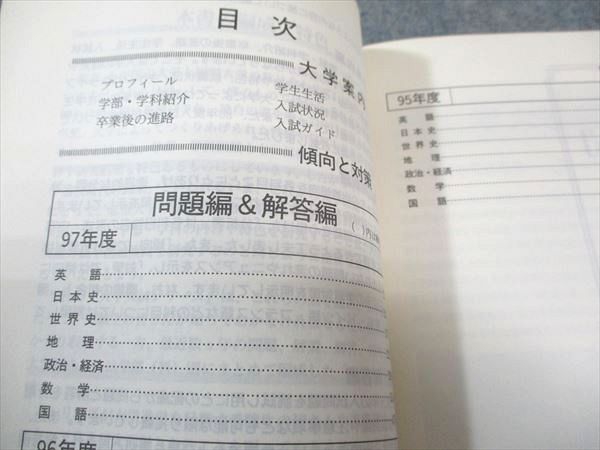 目次
大学案内
プロフィール
学部・学科紹介
卒業後の進路
学生生活
入試状況
入試ガイド
傾向と対策
問題編&解答編
97年度
英語
日本史
世界史
地理
政治・経済
数学
国語
96年度
95年度
英語
日本史
世界史
地理
政治・経済
数学
国語